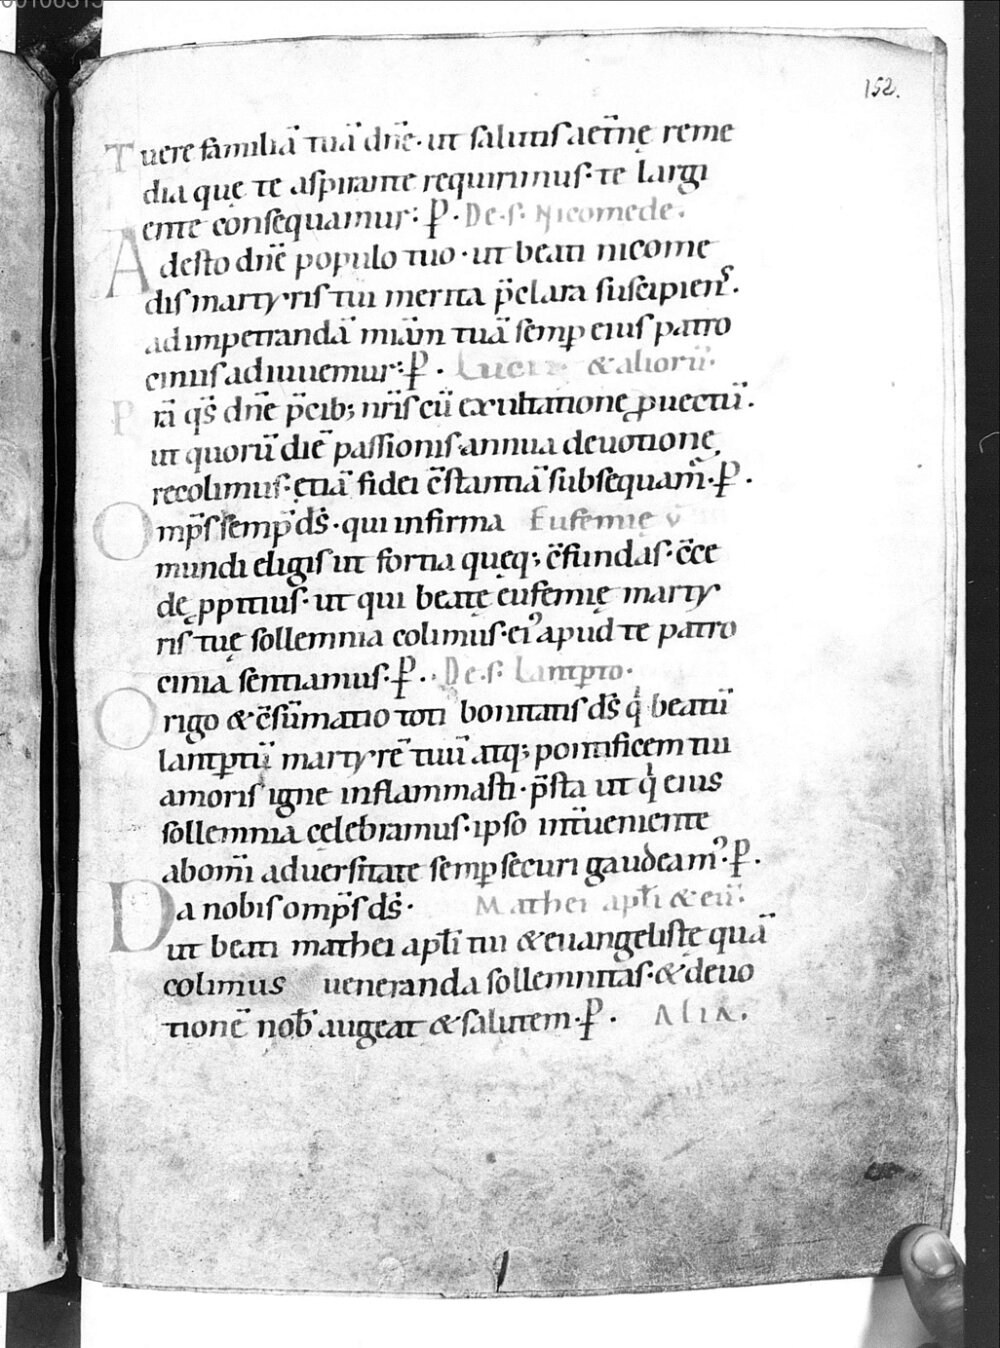 152.
Tuere familiā tuā dn̄e · ut salutis aet̄nę reme
dia quę te aspirante requirimus · te largi
ente consequamur : P̄ · De · s · Nicomede .
Adesto dn̄e populo tuo · ut beati nicome
dis martyris tui merita p̄clara suscipiens .
ad impetrandā miam̄ tuā semp eius patro
ciniis adiuuemur : P̄ . Luci & aliorū .
Prā qs̄ dn̄e p̄cib; nr̄is cū exultatione ꝓuectū .
ut quorū die passionis annua deuotione
recolimus · etiā fidei c̄stantiā subsequam̄ . P̄ .
Omps̄ semp ds̄ · qui infirma Eufemię v̄
mundi eligis ut fortia quęq; c̄fundas · c̄ce
dę ꝓpitius · ut qui beatę eufemię marty
ris tuę sollemnia colimus · ei' apud te patro
cinia sentiamus . P̄ . De · s · Lantꝑto .
Origo & c̄sūmatio toti bonitatis ds̄ q' beatū
lantꝑtū martyrē tuū atq; pontificem tui
amoris igne inflammasti · p̄sta ut q' eius
sollemnia celebramus · ipso int̄ueniente
ab om̄i aduersitate semꝑ securi gaudeam' . P̄ .
Da nobis omps̄ ds̄ . Mathei apl̄i & eū .
ut beati mathei apl̄i tui & euangelistę quā
colimus ueneranda sollemnitas · & deuo
tionē nob̄ augeat & salutem . P̄ . Alia .